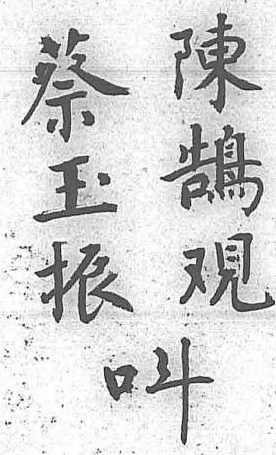 陳鵠观
蔡玉振
叫